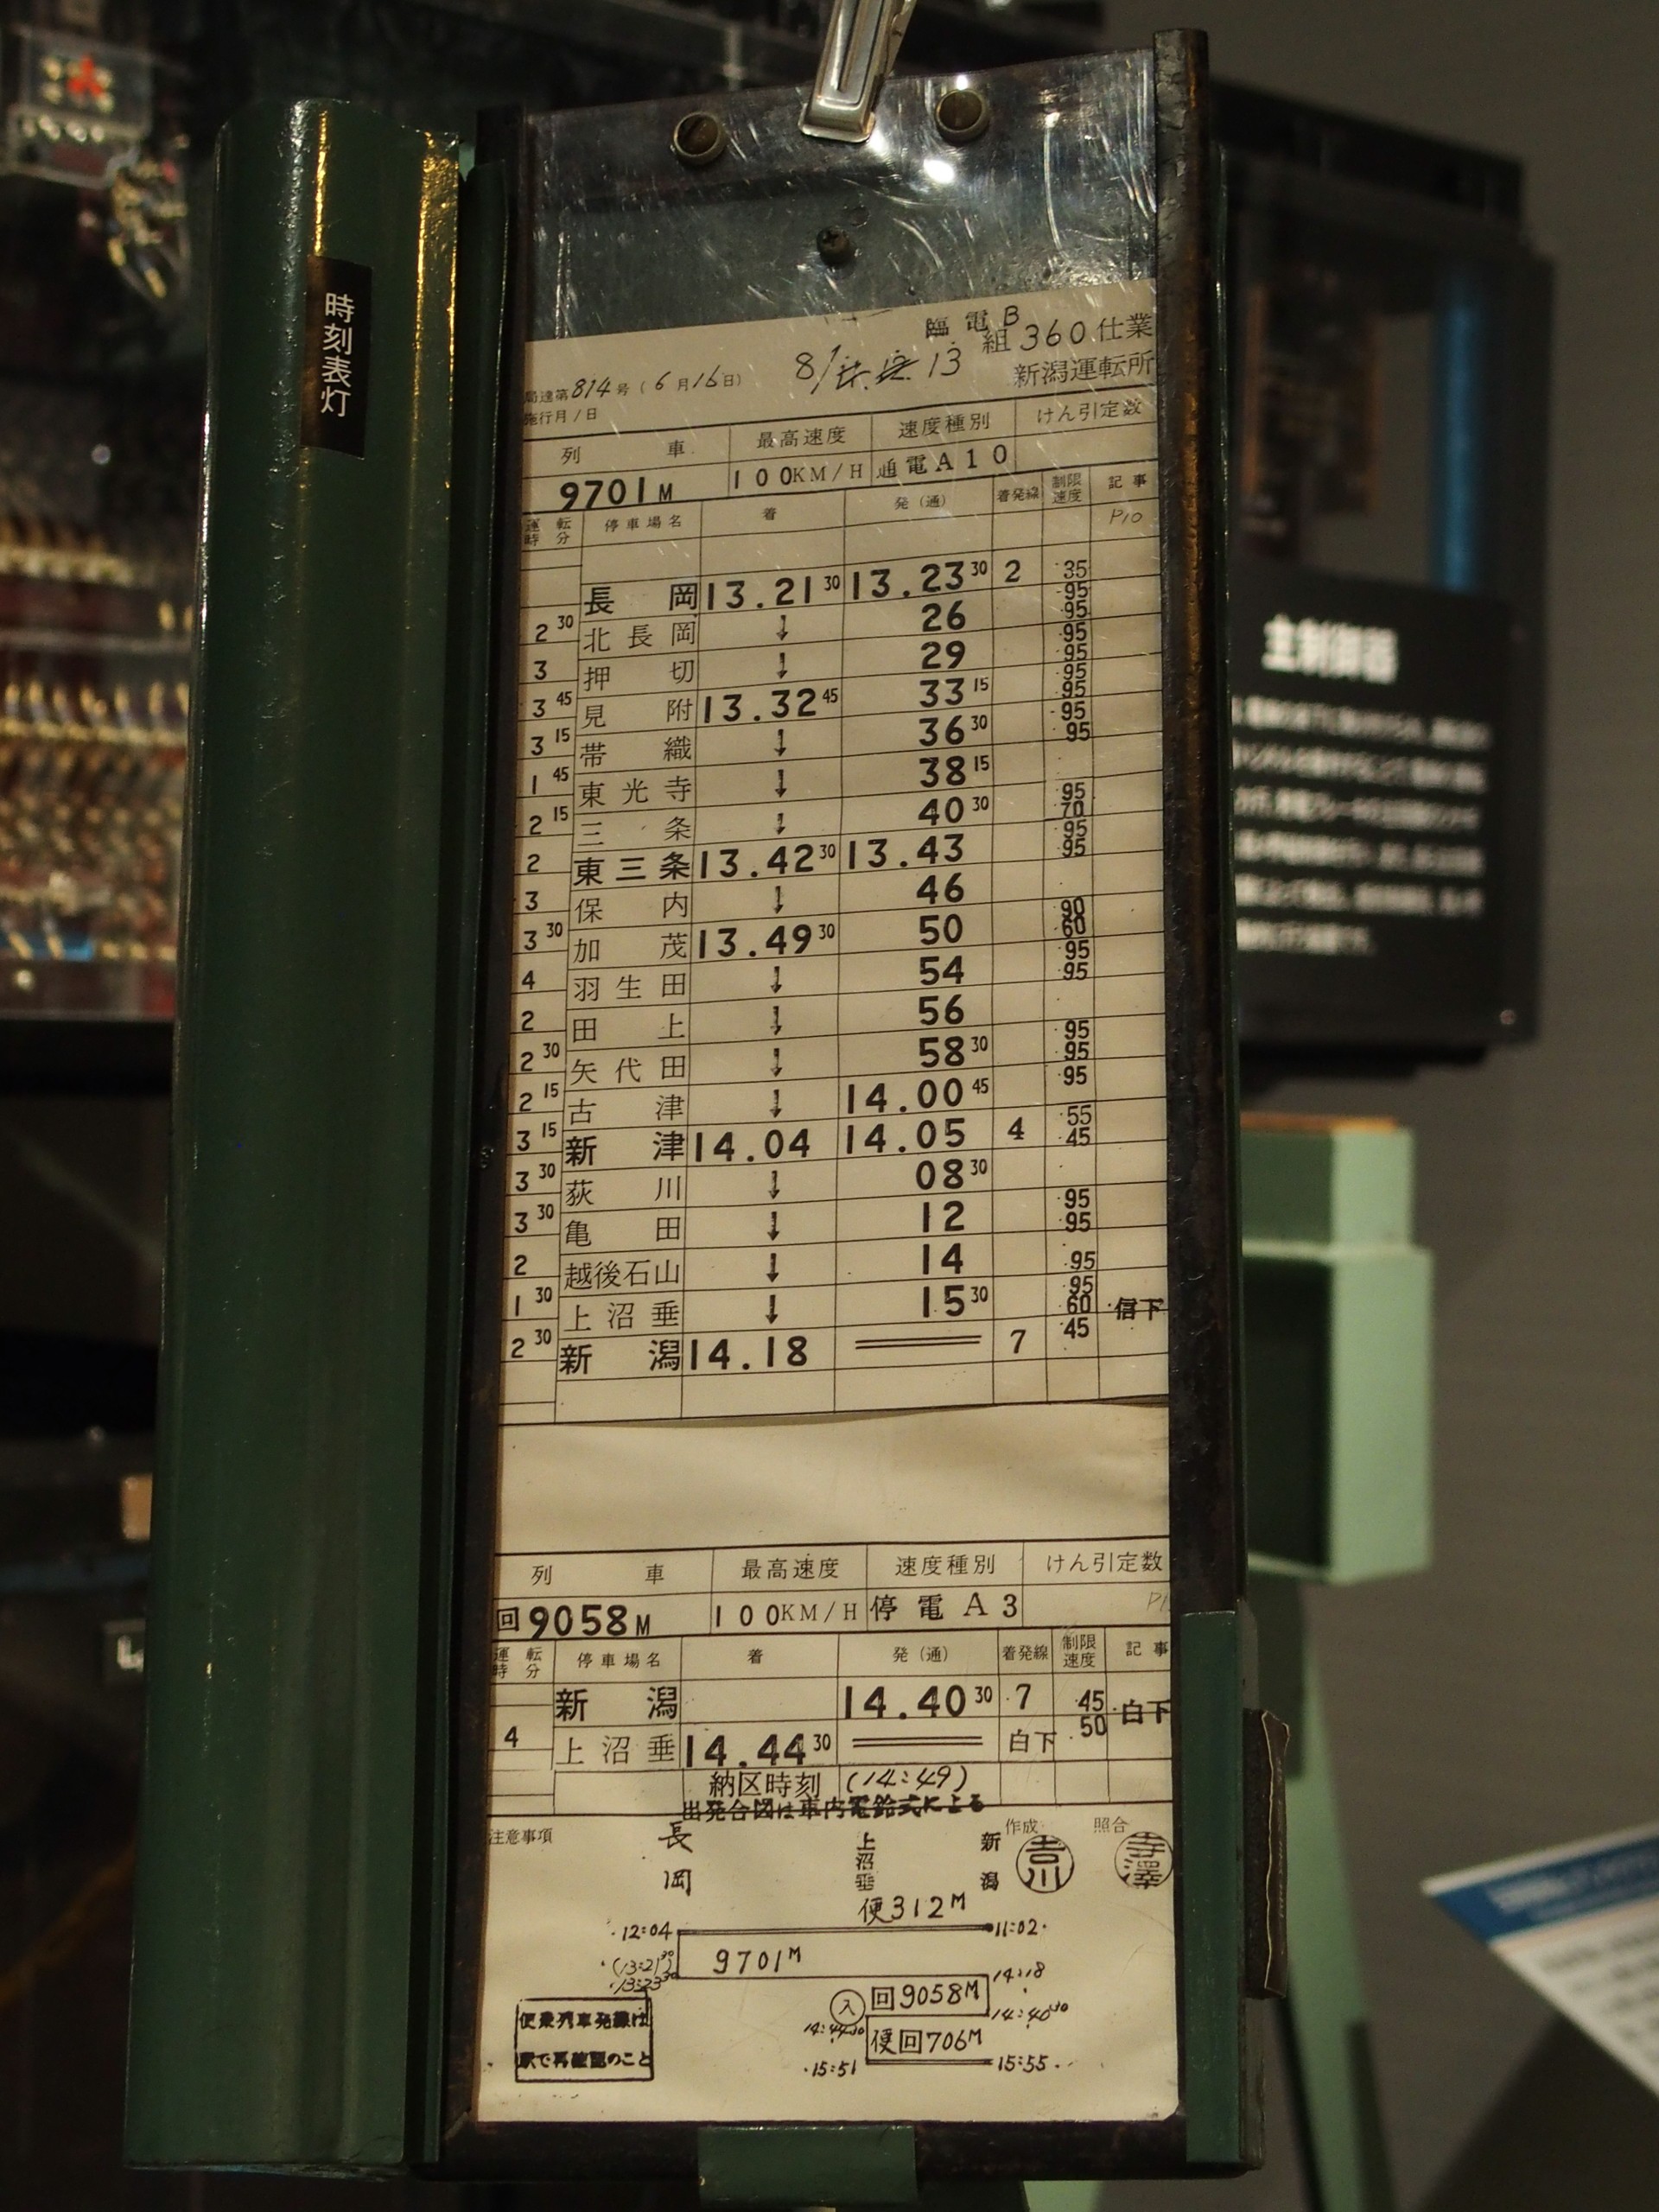 時刻表灯
臨電B
組360仕業
8/ 13
新潟運転所
局達第814号(6月16日)
施行月/日
列車 最高速度 速度種別 けん引定数
9701M 100KM/H 通電A10
運転時分 停車場名 着 発(通) 着発線 制限速度 記事
P10
長岡 13.21 30 13.23 30 2 35
95
2 30 北長岡 ↓ 26 95
95
3 押切 ↓ 29 95
95
3 45 見附 13.32 45 33 15 95
95
3 15 帯織 ↓ 36 30 95
1 45 東光寺 ↓ 38 15
2 15 三条 ↓ 40 30 95
70
2 東三条 13.42 30 13.43 95
95
3 保内 ↓ 46
3 30 加茂 13.49 30 50 90
60
4 羽生田 ↓ 54 95
95
2 田上 ↓ 56
2 30 矢代田 ↓ 58 30 95
95
2 15 古津 ↓ 14.00 45 95
3 15 新津 14.04 14.05 4 55
45
3 30 荻川 ↓ 08 30
3 30 亀田 ↓ 12 95
95
2 越後石山 ↓ 14 95
1 30 上沼垂 ↓ 15 30 95
60 信下
2 30 新潟 14.18 7 45
列車 最高速度 速度種別 けん引定数
回9058M 100KM/H 停電A3
運転時分 停車場名 着 発(通) 着発線 制限速度 記事
新潟 14.40 30 7 45 白下
50
4 上沼垂 14.44 30 白下
納区時刻 (14:49)
出発合図は車内電鈴式による
注意事項 長岡 上沼垂 新潟 作成 吉川 照合 寺澤
便312M
12:04 11:02
9701M
(13:21 30)
13:23 30
14:18
入 回9058M
14:40 30
14:44 30
便回706M
15:51 15:55
便乗列車発線は
駅で再確認のこと
主制御器